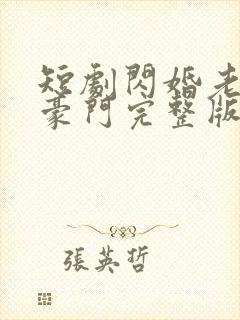 短劇閃婚老
豪門完整版
張英哲